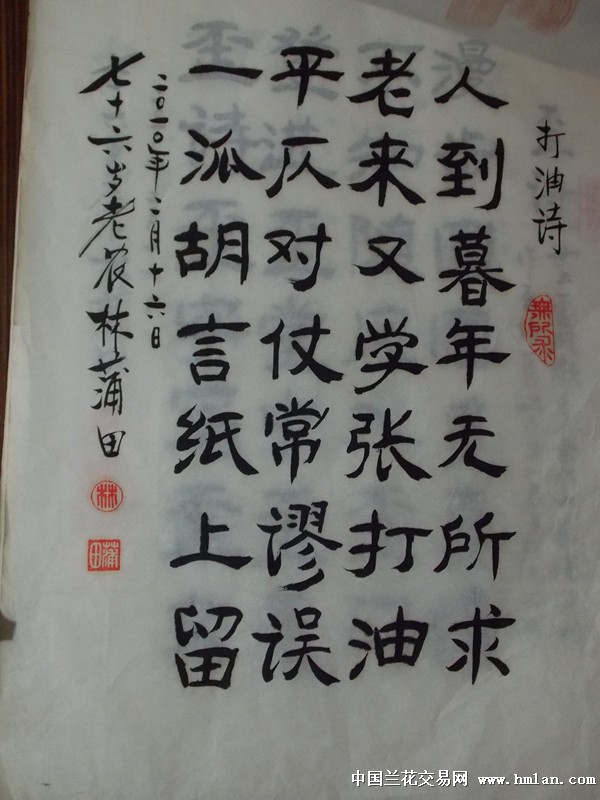 打油诗
無所求
人到暮年无所求
老来又学张打油
平仄对仗常谬误
一派胡言纸上留
二〇一〇年二月十六日
七十六岁老农林蒲田
林
蒲田
中国兰花交易网 www.hmlan.com